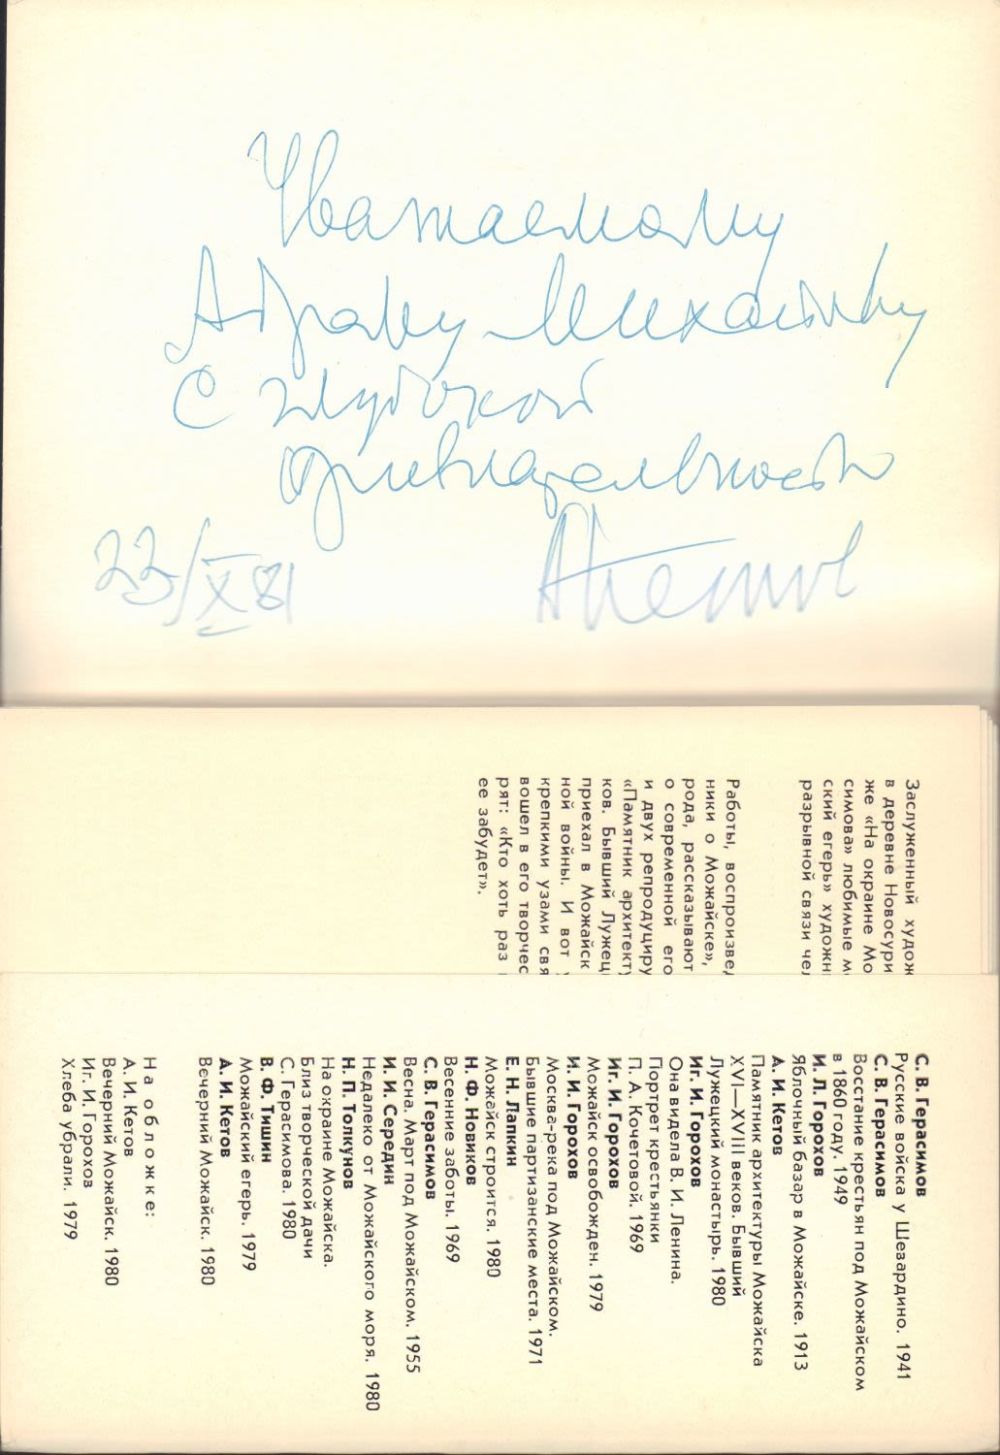 Уважаемому
Абраму Михайловичу
С глубокой
признательностью
22/X 81
АКетов
Заслуженный худож
в деревне Новосури
же «На окраине Мо
симова» любимые м
ский егерь» художн
разрывной связи чел
Работы, воспроизвед
ники о Можайске»,
рода, рассказывают
о современной его
и двух репродуциру
«Памятник архитект
ков. Бывший Лужец
приехал в Можайск
ной войны. И вот
крепкими узами свя
вошел в его творчес
рят: «Кто хоть раз
ее забудет».
С. В. Герасимов
Русские войска у Шевардино. 1941
С. В. Герасимов
Восстание крестьян под Можайском
в 1860 году. 1949
И. Л. Горохов
Яблочный базар в Можайске. 1913
А. И. Кетов
Памятник архитектуры Можайска
XVI—XVIII веков. Бывший
Лужецкий монастырь. 1980
Иг. И. Горохов
Она видела В. И. Ленина.
Портрет крестьянки
П. А. Кочетовой. 1969
Иг. И. Горохов
Можайск освобожден. 1979
И. И. Горохов
Москва-река под Можайском.
Бывшие партизанские места. 1971
Е. Н. Лапкин
Можайск строится. 1980
Н. Ф. Новиков
Весенние заботы. 1969
С. В. Герасимов
Весна. Март под Можайском. 1955
И. И. Середин
Недалеко от Можайского моря. 1980
Н. П. Толкунов
На окраине Можайска.
Близ творческой дачи
С. Герасимова. 1980
В. Ф. Тишин
Можайский егерь. 1979
А. И. Кетов
Вечерний Можайск. 1980
На обложке:
А. И. Кетов
Вечерний Можайск. 1980
Иг. И. Горохов
Хлеба убрали. 1979